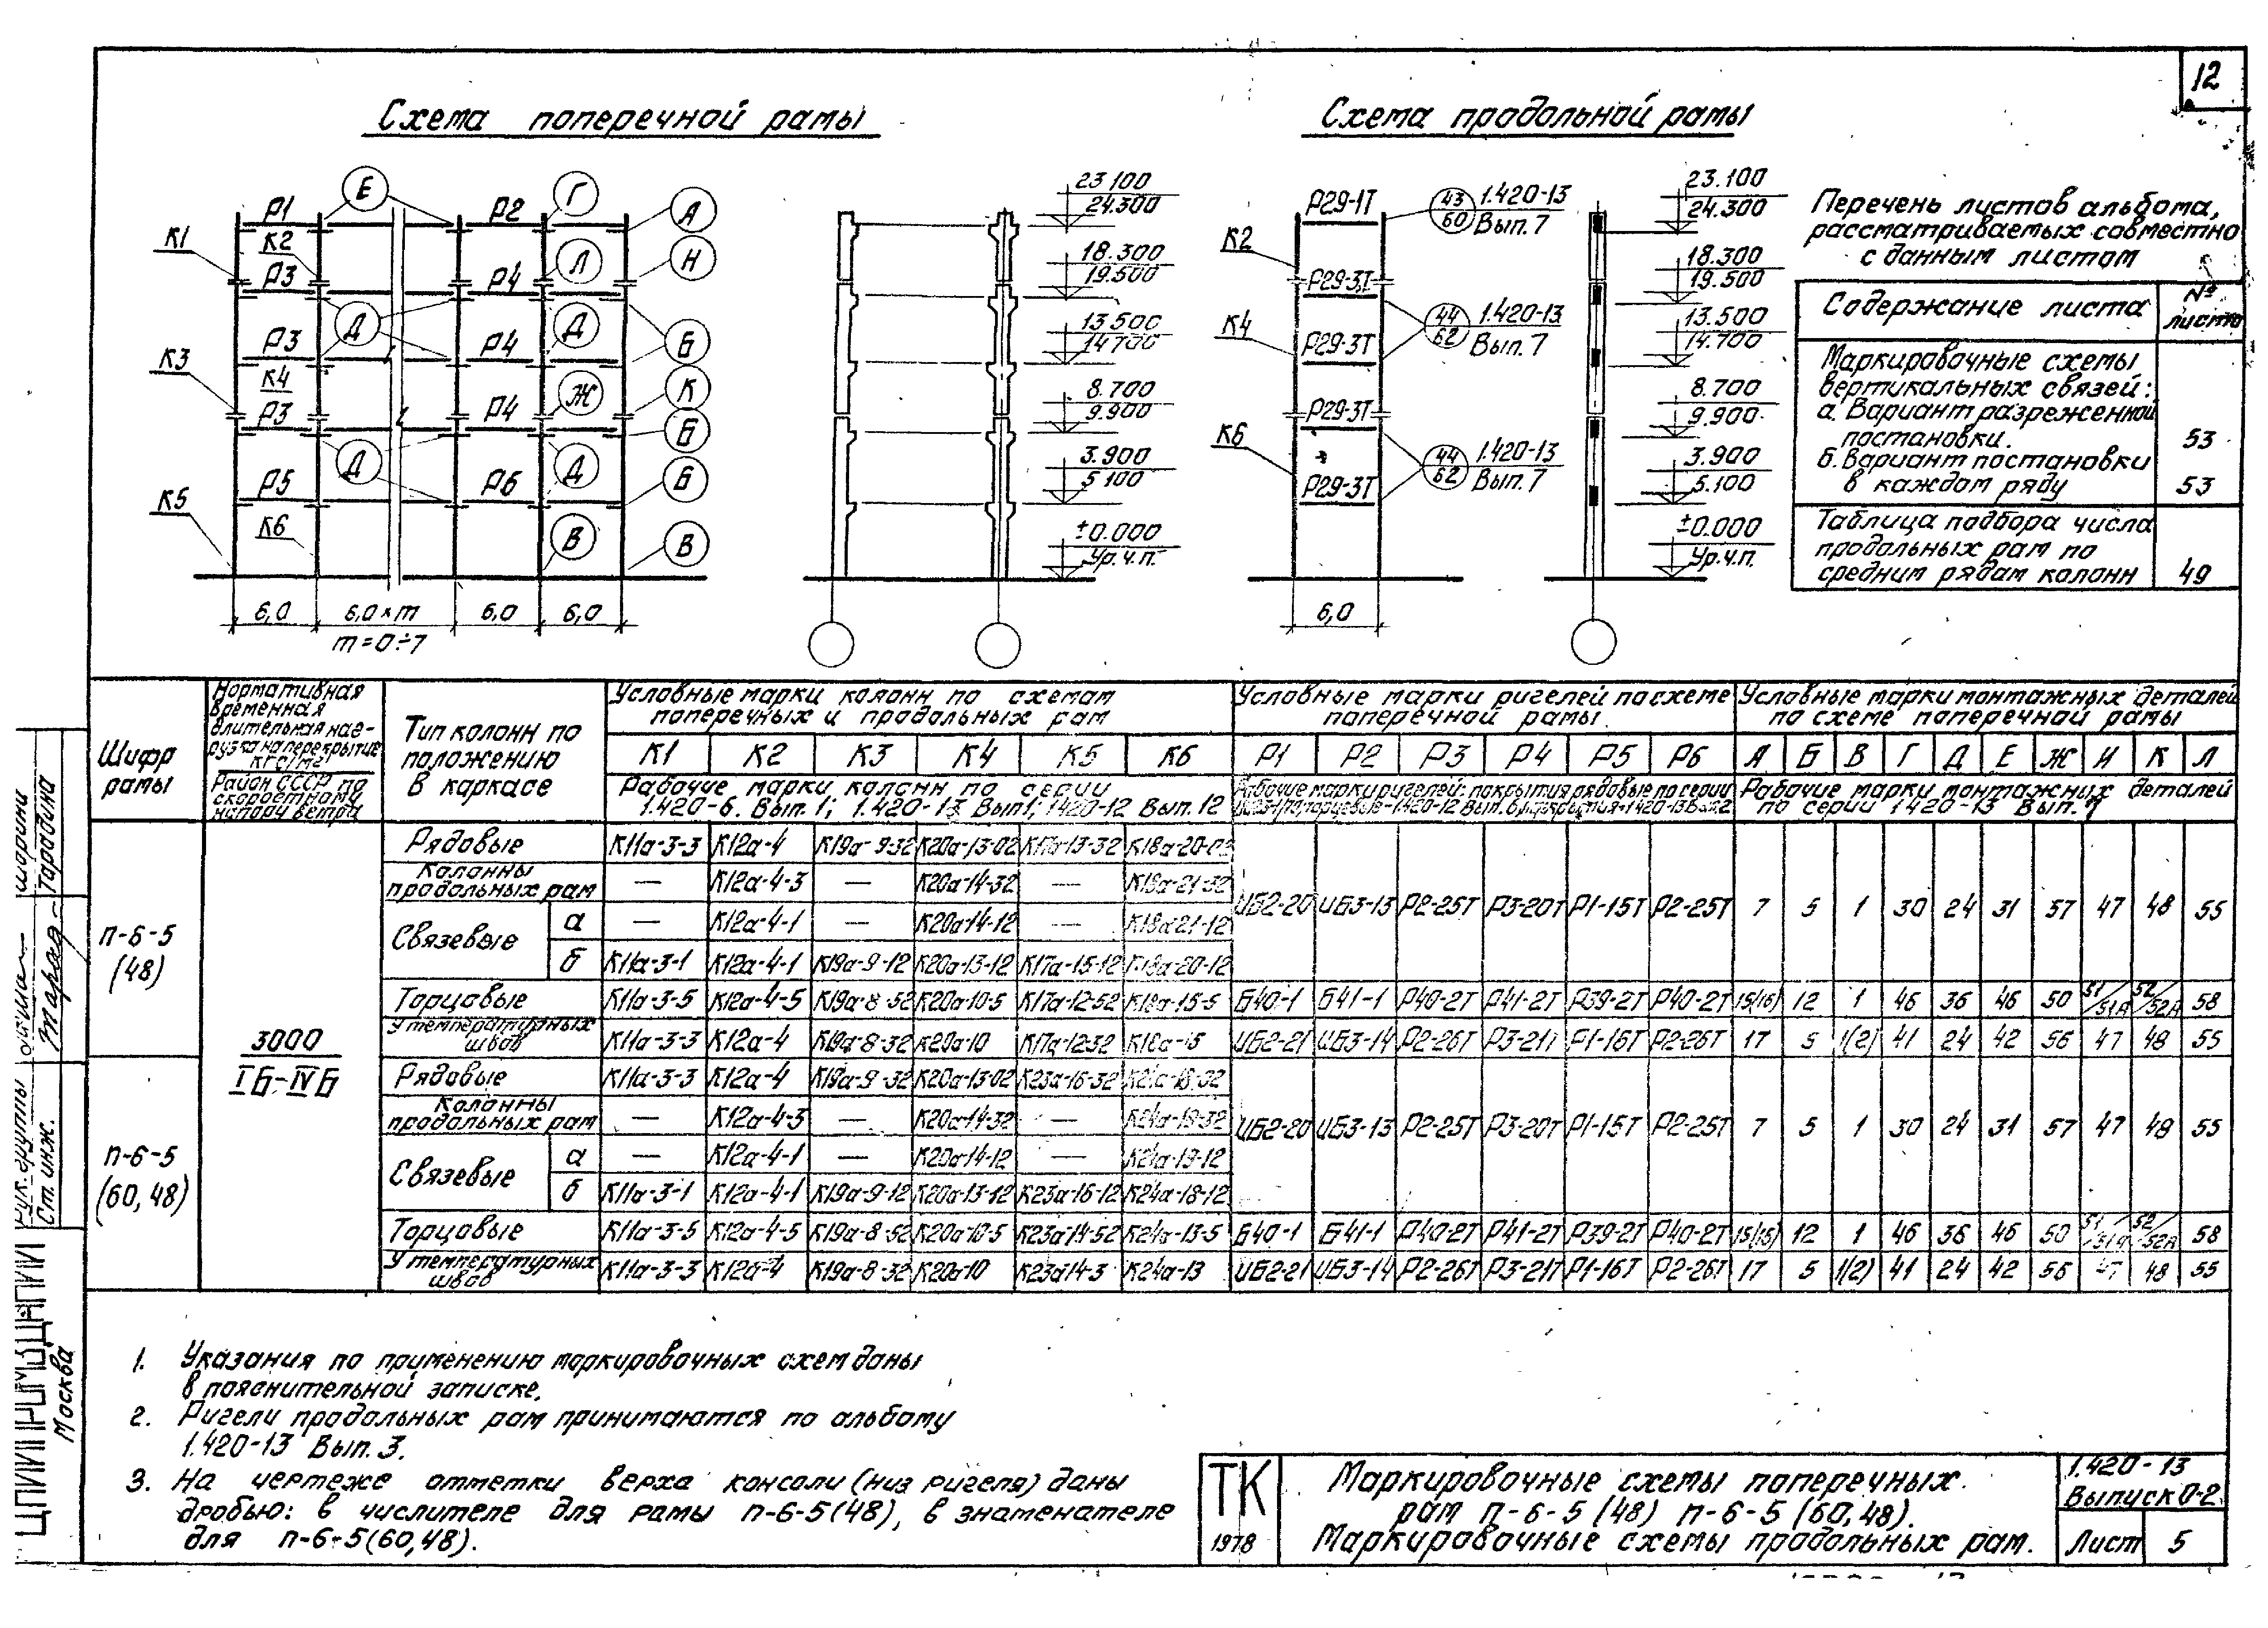 12
Схема поперечной рамы
Схема продольной рамы
Р1
Е
Р2
Г
А
К1
К2
Р3
Р4
Л
Н
Д
Д
Р3
Р4
Б
К3
К4
Ж
К
Р3
Р4
Б
Д
Д
Р5
Р6
Б
К5
К6
В
В
6,0
6,0×m
6,0
6,0
m=0÷7
23.100
24.300
18.300
19.500
13.500
14.700
8.700
9.900
3.900
5.100
±0.000
Ур.ч.п.
Р29-1Т
43
60
1.420-13
Вып. 7
К2
Р29-3Т
44
62
1.420-13
Вып. 7
К4
Р29-3Т
Р29-3Т
К6
44
62
1.420-13
Вып. 7
Р29-3Т
6,0
23.100
24.300
18.300
19.500
13.500
14.700
8.700
9.900
3.900
5.100
±0.000
Ур.ч.п.
Перечень листов альбома,
рассматриваемых совместно
с данным листом
Содержание листа
№ листа
Маркировочные схемы
вертикальных связей:
а. Вариант разреженной
постановки.
53
б. Вариант постановки
в каждом ряду
53
Таблица подбора числа
продольных рам по
средним рядам колонн
49
Шифр рамы
Нормативная
временная
длительная наг-
рузка на перекрытие
кгс/м²
Район СССР по
скоростному
напору ветра
Тип колонн по
положению
в каркасе
Условные марки колонн по схемам
поперечных и продольных рам
К1 К2 К3 К4 К5 К6
Рабочие марки колонн по серии
1.420-6. Вып. 1; 1.420-13 Вып 1; 1.420-12 Вып. 12
Условные марки ригелей по схеме
поперечной рамы.
Р1 Р2 Р3 Р4 Р5 Р6
Рабочие марки ригелей: покрытия рядовые по серии
Условные марки монтажных деталей
по схеме поперечной рамы
А Б В Г Д Е Ж И К Л
Рабочие марки монтажных деталей
по серии 1.420-13 Вып. 7
п-6-5
(48)
3000
IБ-IVБ
Рядовые К11а-3-3 К12а-4 К19а-9-32 К20а-13-02 К17а-13-32
Колонны
продольных рам — К12а-4-3 — К20а-14-32 — К18а-21-32
Связевые
а — К12а-4-1 — К20а-14-12 — К18а21-12
б К11а-3-1 К12а-4-1 К19а-9-12 К20а-13-12 К17а-15-12 К18а-20-12
ИБ2-20 ИБ3-13 Р2-25Т Р3-20Т Р1-15Т Р2-25Т 7 5 1 30 24 31 57 47 48 55
Торцовые К11а-3-5 К12а-4-5 К19а-8-52 К20а-10-5 К17а-12-52 К18а-15-5 Б40-1 Б41-1 Р40-2Т Р41-2Т Р39-2Т Р40-2Т 15(16) 12 1 46 36 46 50 51/51А 52/52А 58
У температурных
швов К11а-3-3 К12а-4 К19а-8-32 К20а-10 К17а-12-32 К18а-15 ИБ2-21 ИБ3-14 Р2-26Т Р3-21Т Р1-16Т Р2-26Т 17 5 1(2) 41 24 42 56 47 48 55
п-6-5
(60,48)
Рядовые К11а-3-3 К12а-4 К19а-9-32 К20а-13-02 К23а-16-32
Колонны
продольных рам — К12а-4-3 — К20а-14-32 — К24а-19-32
Связевые
а — К12а-4-1 — К20а-14-12 — К24а-19-12
б К11а-3-1 К12а-4-1 К19а-9-12 К20а-13-12 К23а-16-12 К24а-18-12
ИБ2-20 ИБ3-13 Р2-25Т Р3-20Т Р1-15Т Р2-25Т 7 5 1 30 24 31 57 47 48 55
Торцовые К11а-3-5 К12а-4-5 К19а-8-52 К20а-10-5 К23а14-52 К24а-13-5 Б40-1 Б41-1 Р40-2Т Р41-2Т Р39-2Т Р40-2Т 15(16) 12 1 46 36 46 50 51/51А 52/52А 58
У температурных
швов К11а-3-3 К12а-4 К19а-8-32 К20а10 К23а14-3 К24а-13 ИБ2-21 ИБ3-14 Р2-26Т Р3-21Т Р1-16Т Р2-26Т 17 5 1(2) 41 24 42 56 47 48 55
1. Указания по применению маркировочных схем даны
в пояснительной записке.
2. Ригели продольных рам принимаются по альбому
1.420-13 Вып. 3.
3. На чертеже отметки верха консоли (низ ригеля) даны
дробью: в числителе для рамы п-6-5(48), в знаменателе
для п-6-5(60,48).
ТК
1978
Маркировочные схемы поперечных
рам п-6-5 (48) п-6-5 (60,48).
Маркировочные схемы продольных рам.
1.420-13
Выпуск 0-2
Лист 5
Рук. группы
Ст. инж.
Тарадина
ЦНИИПРОМЗДАНИЙ
Москва